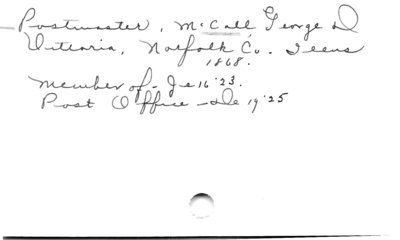 Postmaster, McCall, George D
Vittoria, Norfolk Co. Icens
1868.
Member of - Je 16 '23.
Post Office - De 19 '25